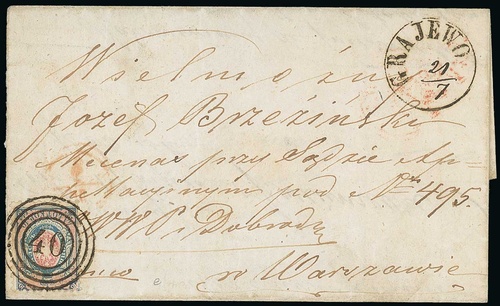 GRAJEWO
21/7
Wielmożny
Jozef Brzeziński
Mecenas przy Sądzie Ap-
pellacyjnym pod No 495
WWP i Dobrodz
w Warszawie
40